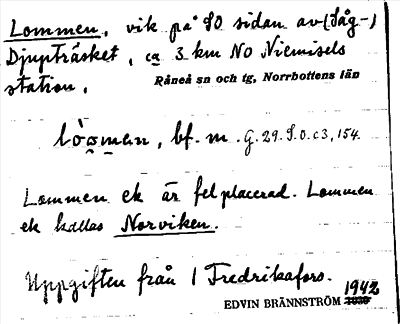 Lommen, vik på SO sidan av (Såg-)
Djupträsket, ca 3 km NO Niemisels
station,
Råneå sn och tg, Norrbottens län
lo̱men, bf. m. G.29.S.O.c3,154.
Lommen ek är felplacerad. Lommen
ek kallas Norviken.
Uppgiften från 1 Fredrikafors.
1942
EDVIN BRÄNNSTRÖM